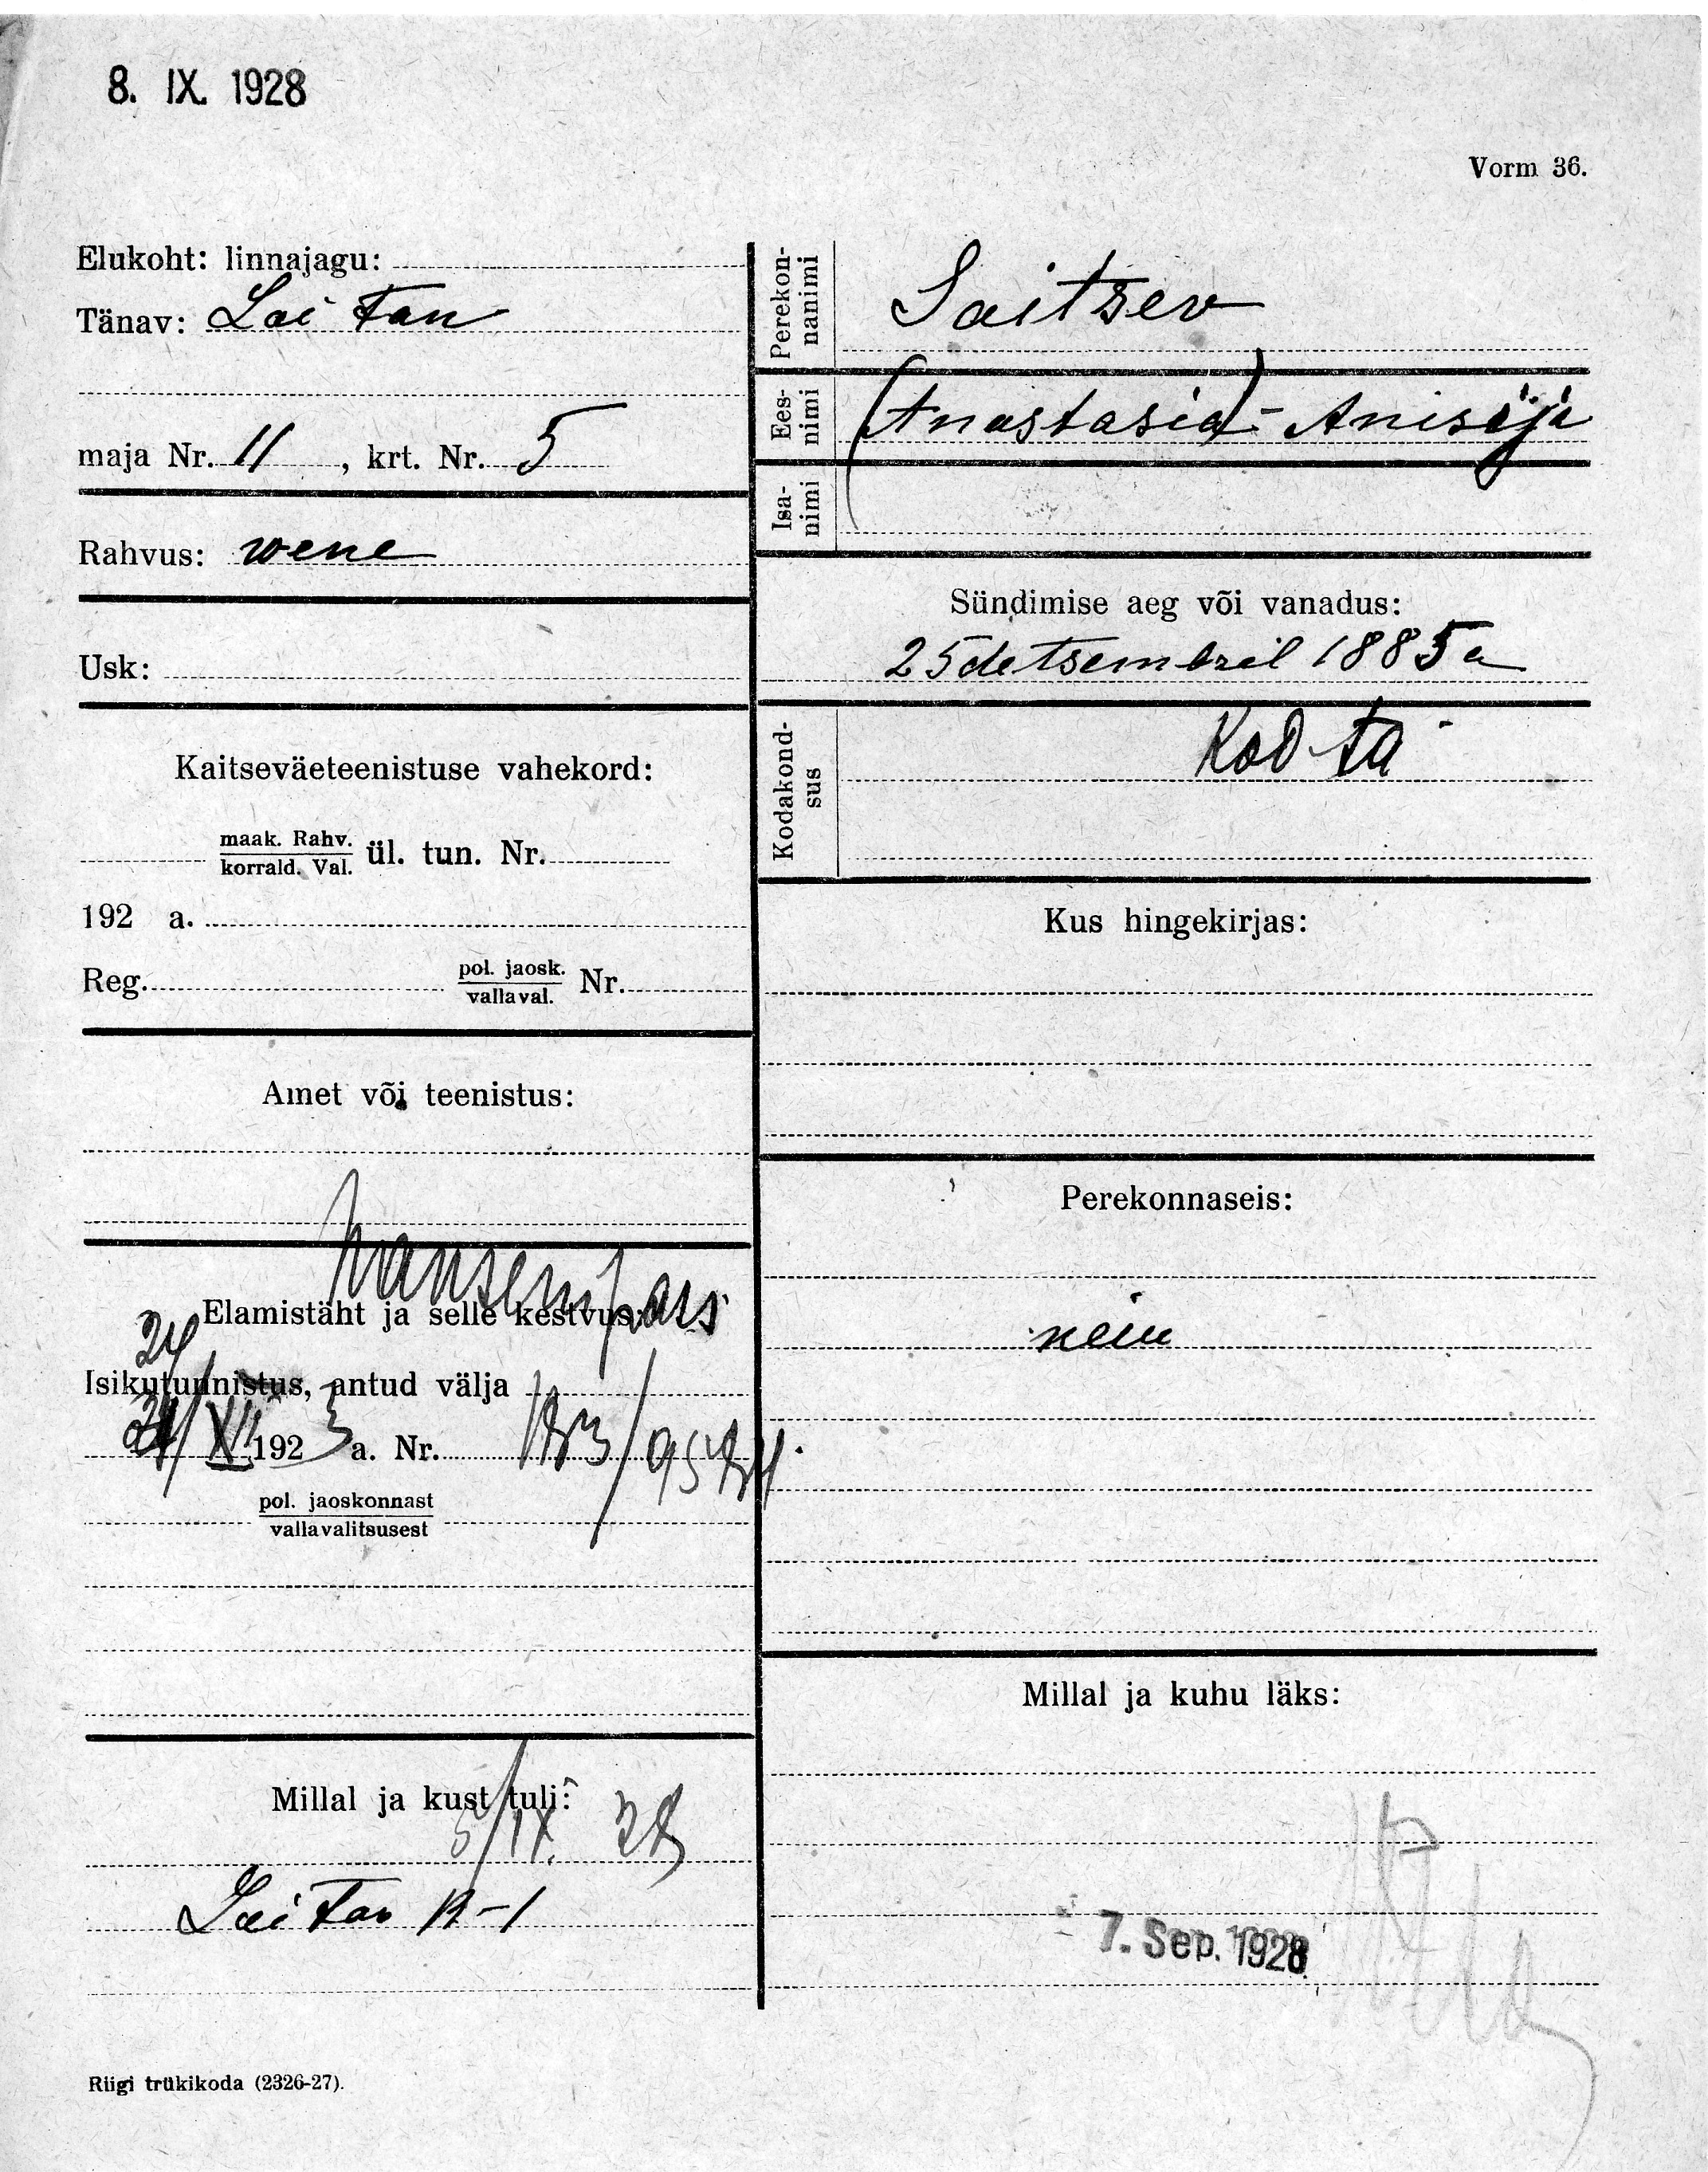 8. IX. 1928
Vorm 36.
Elukoht: linnajagu:
Tänav: Lai tan
maja Nr. 11, krt. Nr. 5
Rahvus: wene
Usk:
Kaitseväeteenistuse vahekord:
maak. Rahv.
korrald. Val. ül. tun. Nr.
192 a.
Reg. pol. jaosk.
vallaval. Nr.
Amet või teenistus:
Nansenipass
Elamistäht ja selle kestvus:
24
Isikutunnistus, antud välja
XII 192 3 a. Nr. 183/
pol. jaoskonnast
vallavalitsusest
Millal ja kust tuli:
5/IX. 28
Lai tan
Riigi trükikoda (2326-27).
Perekon-
nanimi
Saitsev
Ees-
nimi
(Anastasia) - Anisija
Isa-
nimi
Sündimise aeg või vanadus:
25 detsembril 1885 a
Kodakond-
sus
Kod-ta
Kus hingekirjas:
Perekonnaseis:
Millal ja kuhu läks:
7. Sep. 1928